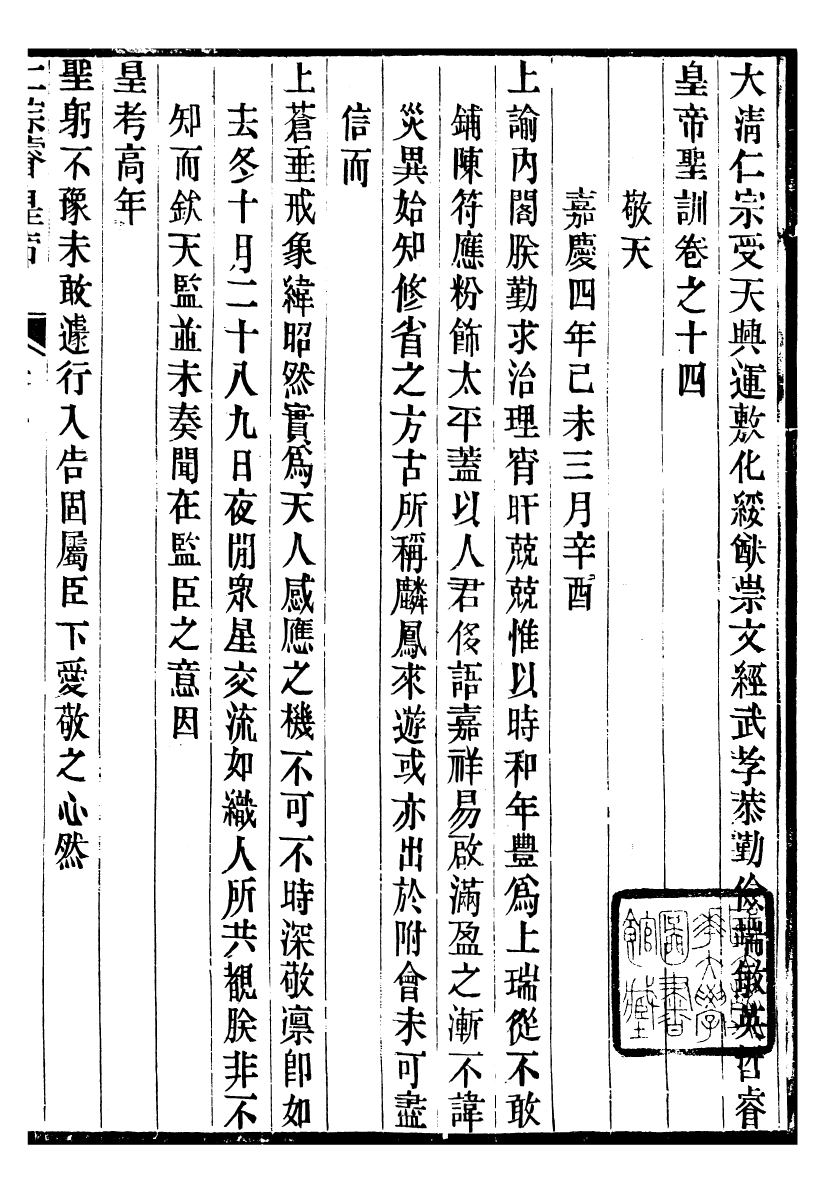 大淸仁宗受天興運敷化綏猷崇文經武孝恭勤儉端敏英哲睿
皇帝聖訓卷之十四
敬天
嘉慶四年己未三月辛酉
上諭內閣朕勤求治理宵旰兢兢惟以時和年豐爲上瑞從不敢
鋪陳符應粉飾太平蓋以人君侈語嘉祥易啟滿盈之漸不諱
災異始知修省之方古所稱麟鳳來遊或亦出於附會未可盡
信而
上蒼垂戒象緯昭然實爲天人感應之機不可不時深敬凛卽如
去冬十月二十八九日夜閒眾星交流如織人所共覩朕非不
知而欽天監並未奏聞在監臣之意因
皇考高年
聖躬不豫未敢遽行入告固屬臣下愛敬之心然
仁宗睿皇帝
大學
圖書
館藏